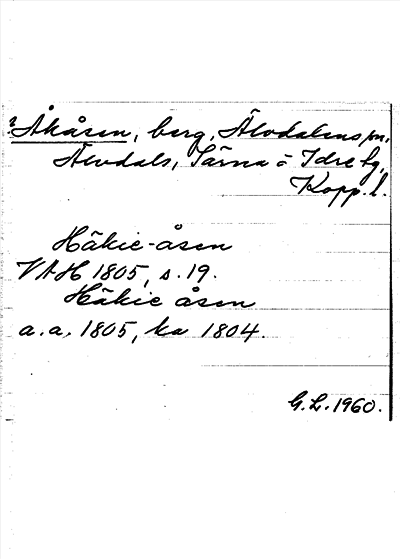 ? Åkåsen, berg, Älvdalens sn,
Älvdals, Särna o Idre tg,
Kopp. l.
Håkie-åsen
VAH 1805, s. 19.
Håkie åsen
a. a. 1805, ka 1804.
G. L. 1960.